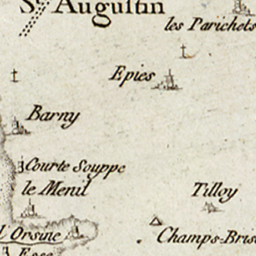 St Augustin
les Parichets
Epies
Barny
Courte Souppe
le Menil
Tilloy
l'Orsine
Champs-Bris